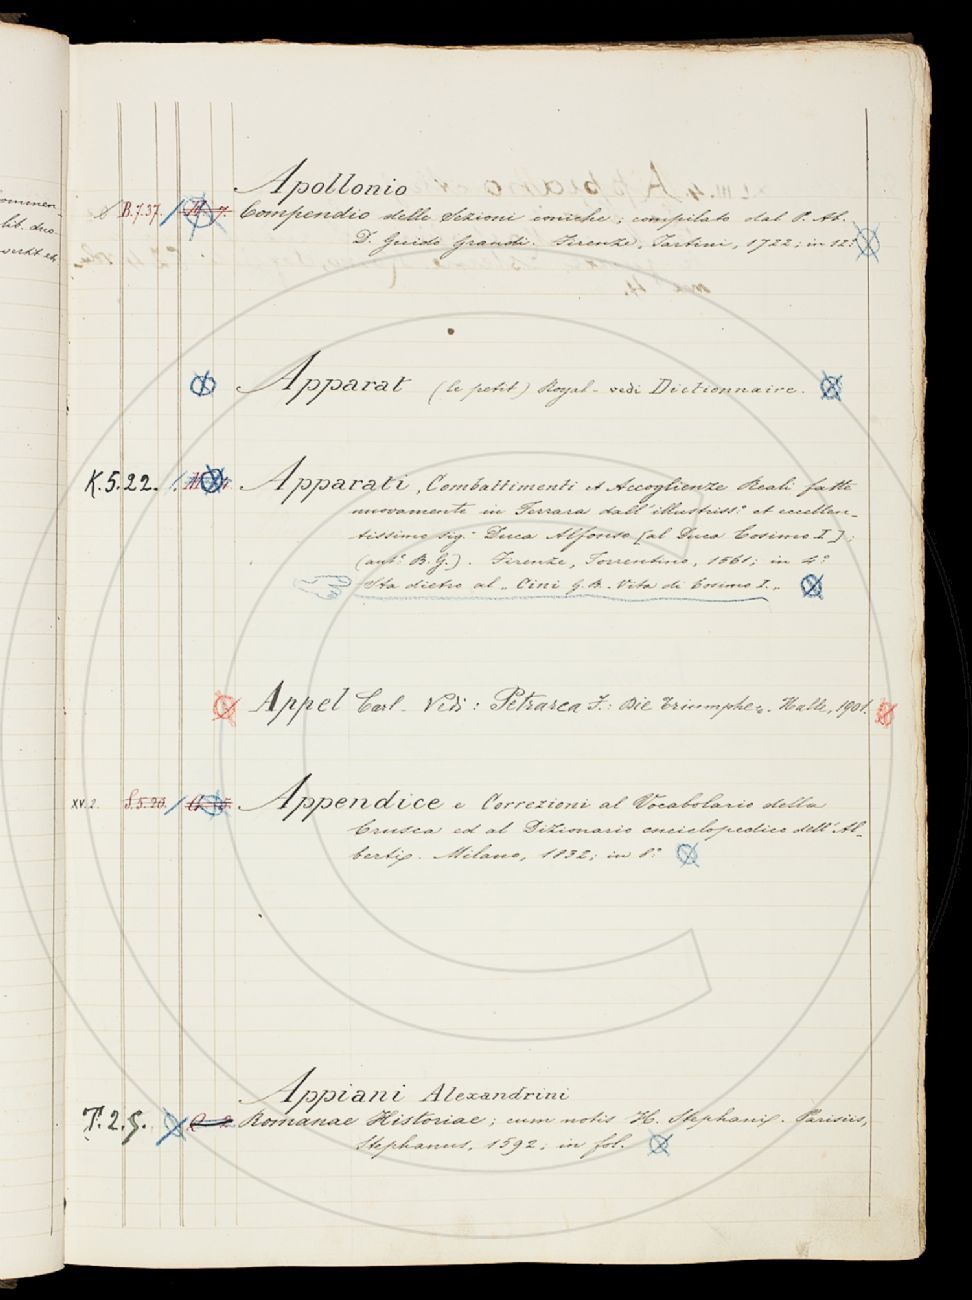 Apollonio
B.7.37. Compendio delle Sezioni coniche; compilato dal P. Ab.
D. Guido Grandi. Firenze, Tartini, 1722; in 12.º
Apparat (le petit) Royal - vedi Dictionnaire.
K.5.22. Apparati, Combattimenti et Accoglienze Reali fatte
nuovamente in Ferrara dall'illustriss.º et eccellen-
tissimo sig.r Duca Alfonso [al Duca Cosimo I];
(aut.e B. G.). Firenze, Torrentino, 1561; in 4.º
Sta dietro al „Cini G.B. Vita di Cosimo I."
Appel Carl - Vedi: Petrarca F.: Die Triumphe. Halle, 1901.
XV.2. S.5.20. Appendice e Correzioni al Vocabolario della
Crusca ed al Dizionario enciclopedico dell'Al-
berti. Milano, 1832; in 8.º
Appiani Alexandrini
T.2.5. Romanae Historiae; cum notis H. Stephani. Parisiis,
Stephanus, 1592; in fol.